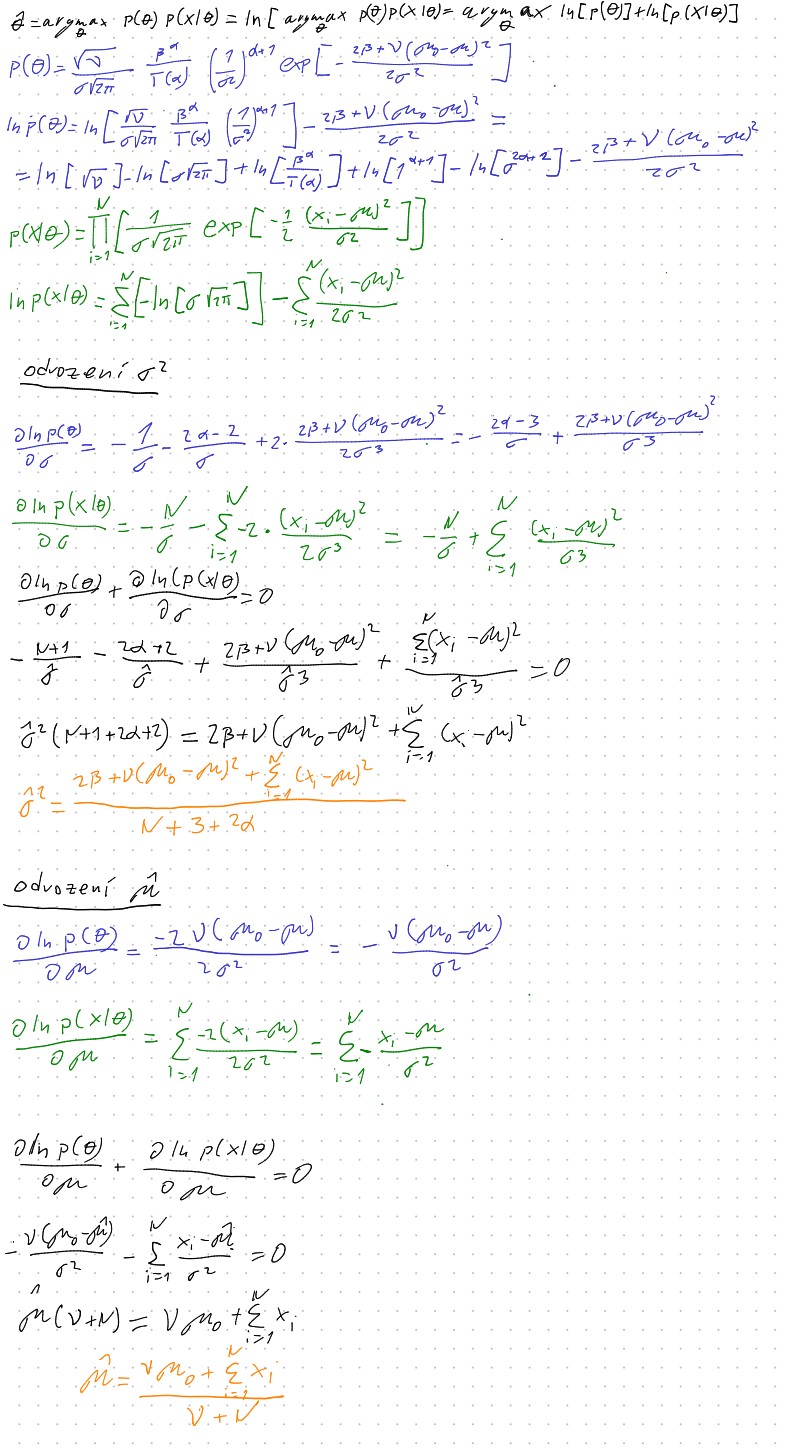 θ̂ = argmax_θ p(θ) p(x|θ) = ln[ argmax_θ p(θ) p(x|θ) = argmax_θ ln[p(θ)] + ln[p(x|θ)]
p(θ) = √ν/(σ√2π) β^α/Γ(α) (1/σ²)^(α+1) exp[ - (2β+ν(μ₀-μ)²)/(2σ²) ]
ln p(θ) = ln[ √ν/(σ√2π) β^α/Γ(α) (1/σ²)^(α+1) ] - (2β+ν(μ₀-μ)²)/(2σ²) =
= ln[√ν] - ln[σ√2π] + ln[β^α/Γ(α)] + ln[1^(α+1)] - ln[σ^(2α+2)] - (2β+ν(μ₀-μ)²)/(2σ²)
p(x|θ) = ∏_{i=1}^{N} [ 1/(σ√2π) exp[ -1/2 (x_i-μ)²/σ² ] ]
ln p(x|θ) = ∑_{i=1}^{N} [ -ln[σ√2π] ] - ∑_{i=1}^{N} (x_i-μ)²/(2σ²)
odvození σ²
∂ln p(θ)/∂σ = - 1/σ - (2α-2)/σ + 2· (2β+ν(μ₀-μ)²)/(2σ³) = - (2α-3)/σ + (2β+ν(μ₀-μ)²)/σ³
∂ln p(x|θ)/∂σ = - N/σ - ∑_{i=1}^{N} -2· (x_i-μ)²/(2σ³) = - N/σ + ∑_{i=1}^{N} (x_i-μ)²/σ³
∂ln p(θ)/∂σ + ∂ln(p(x|θ)/∂σ = 0
- (N+1)/σ̂ - (2α+2)/σ̂ + (2β+ν(μ₀-μ)²)/σ̂³ + ∑_{i=1}^{N}(x_i-μ)²/σ̂³ = 0
σ̂²(N+1+2α+2) = 2β+ν(μ₀-μ)² + ∑_{i=1}^{N} (x_i-μ)²
σ̂² = (2β+ν(μ₀-μ)² + ∑_{i=1}^{N} (x_i-μ)²)/(N+3+2α)
odvození μ̂
∂ln p(θ)/∂μ = -2ν(μ₀-μ)/(2σ²) = - ν(μ₀-μ)/σ²
∂ln p(x|θ)/∂μ = ∑_{i=1}^{N} -2(x_i-μ)/(2σ²) = ∑_{i=1}^{N} - (x_i-μ)/σ²
∂ln p(θ)/∂μ + ∂ln p(x|θ)/∂μ = 0
- ν(μ₀-μ̂)/σ² - ∑_{i=1}^{N} (x_i-μ̂)/σ² = 0
μ̂(ν+N) = νμ₀ + ∑_{i=1}^{N} x_i
μ̂ = (νμ₀ + ∑_{i=1}^{N} x_i)/(ν+N)